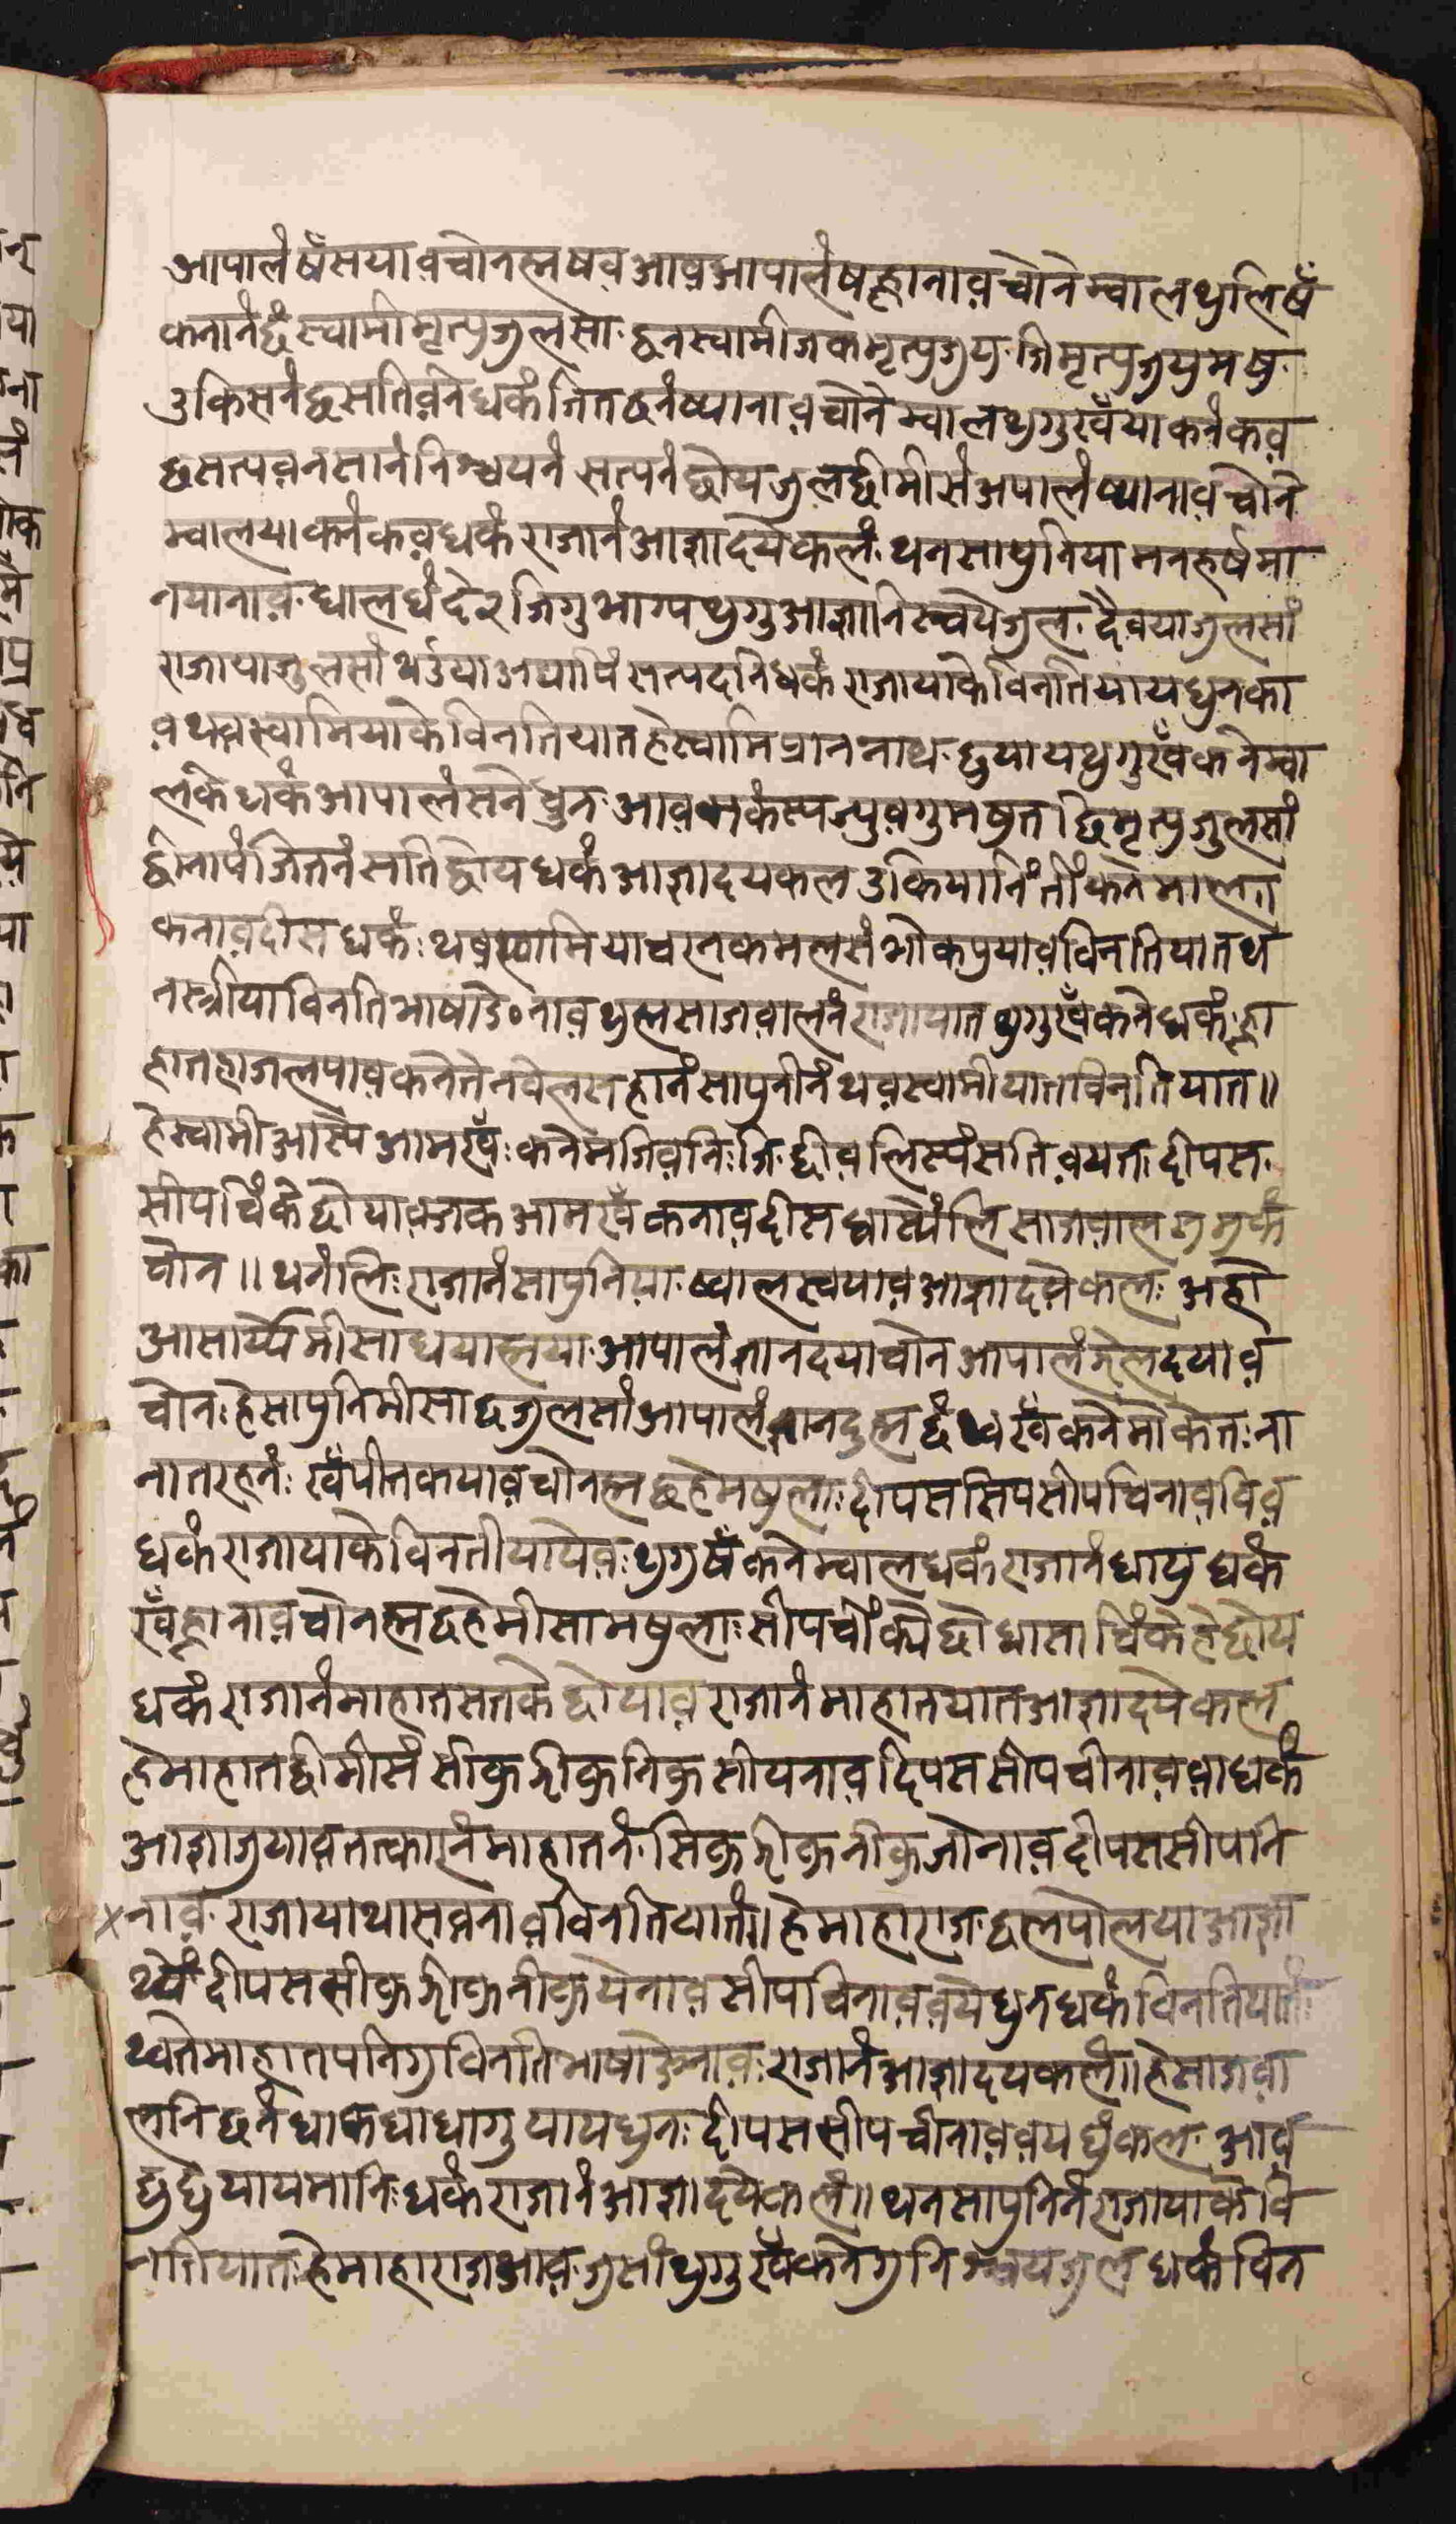 आपालं षँसया व़चोनह्म षव़ आव़ आपालं षह्लाना व़चोने म्वाल थुलि षँ
कनानं छँ स्वामी मृत्यु जुलसा. छन स्वामी जक मृत्यु जुयु. जि मृत्यु जुयु मषु.
उकिसनं छ सति व़ने धकं जित छनं ष्याना व़चोने म्वाल थुगु खँया कनं कव़
छ सत्य व़नसानं निश्चयनं सत्यनं छोय जुल छी मीसं अपालं ष्याना व़चोने
म्वालया कनं कव़ धकं राजानं आज्ञा दयेकलं. थन सापुनिया मन हर्षमा
नयानाव़. धाल धंदे २ जिगु भाग्य थुगु आज्ञा निस्चये जुल. दैवया जुलसां
राजाया जुलसां थउया अद्यापिं सत्य दनि धकं राजायाके विनति याय धुनका
व़ थव़ स्वामियाके विनति यात हे स्वामि प्राननाथ. छु याय थुगु खँ कने म्वा
लके धकं आपालं सने धुन. आव़ मकंस्य ज्युव़गु मषुत छि मृत्यु जुलसां
छिनापं जितनं सति छोय धकं आज्ञा दयकल उकिया निंतीं कने मालत
कनाव़ दीस धकं: थव़ स्वामिया चरन कमलसं भोकपुयाव़ विनति यात थ
न स्त्रीया विनति भाषा ङेनाव़ थुह्म साजव़ालनं राजायात थुगु खँ कने धकं ह्ला
हात हाजलपाव़ कनेतेन वेलस हानं सापुनीनं थव़ स्वामीयात विनति यात॥
हे स्वामी आस्ये आम खँ: कने मजिव़नि: जि. छी व़लिस्यं सति व़यत. दीपस.
सीप चिंके छोयाव़ जक आम खँ कनाव़ दीस धास्यंलि साजव़ाल सुमुकं
चोन॥ थनंलि: राजानं सापुनिया. ष्वाल स्वयाव़ आज्ञा दयेकल: अहो
आसार्य्य मीसा धयाह्मया. आपालं ज्ञान दया चोन आपालं गेल दयाव़
चोन: हे सापुनि मीसा छ जुलसां आपालं ज्ञान दुह्म छं थव़ खँ कने मोकेत: ना
ना तरहनं: खँ पीतकयाव़ चोनह्म छ हे मषुला: दीपस सिप सीप चिनाव़ विव़
धकं राजायाके विनती यायेव़: थुगु षँ कने म्वाल धकं राजानं धायु धकं
खँ ह्लाना व़चोनह्म छ हे मीसा मषुला: सीप चींक्ये छो धासा चिंके हे छोय
धकं राजानं माहात सतके छोयाव़ राजानं माहातयात आज्ञा दयेकल
हे माहात छी मीसं सीकु ङीकु निकु सीयनाव़ दिपस सीप चीनाव़ व़ा धकं
आज्ञा जुयाव़ तत्कारनं माहातनं. सिकु ङीकु नीकु जोनाव़ दीपस सीप चि
नाव़. राजाया थास व़नाव़ विनति यातं॥ हे माहाराज. छलपोलया आज्ञा
थ्यें दीपस सीकु ङीकु नीकु येनाव़ सीप चिनाव़ व़ये धुन धकं विनति यातं
थ्वते माहातपनिगु विनति भाषा ङेनाव़: राजानं आज्ञा दयकलं॥ हे साजव़ा
लनि छनं धाक धाधागु याय धुन: दीपस सीप चीनाव़ व़य धुंकल. आव़
छु छु याय मानि: धकं राजानं आज्ञा दयेकलं॥ थन सापुनिनं राजायाके वि
नति यात: हे माहाराज आव़ जुसां थुगु खँ कनेगु निश्चय जुल धकं विन